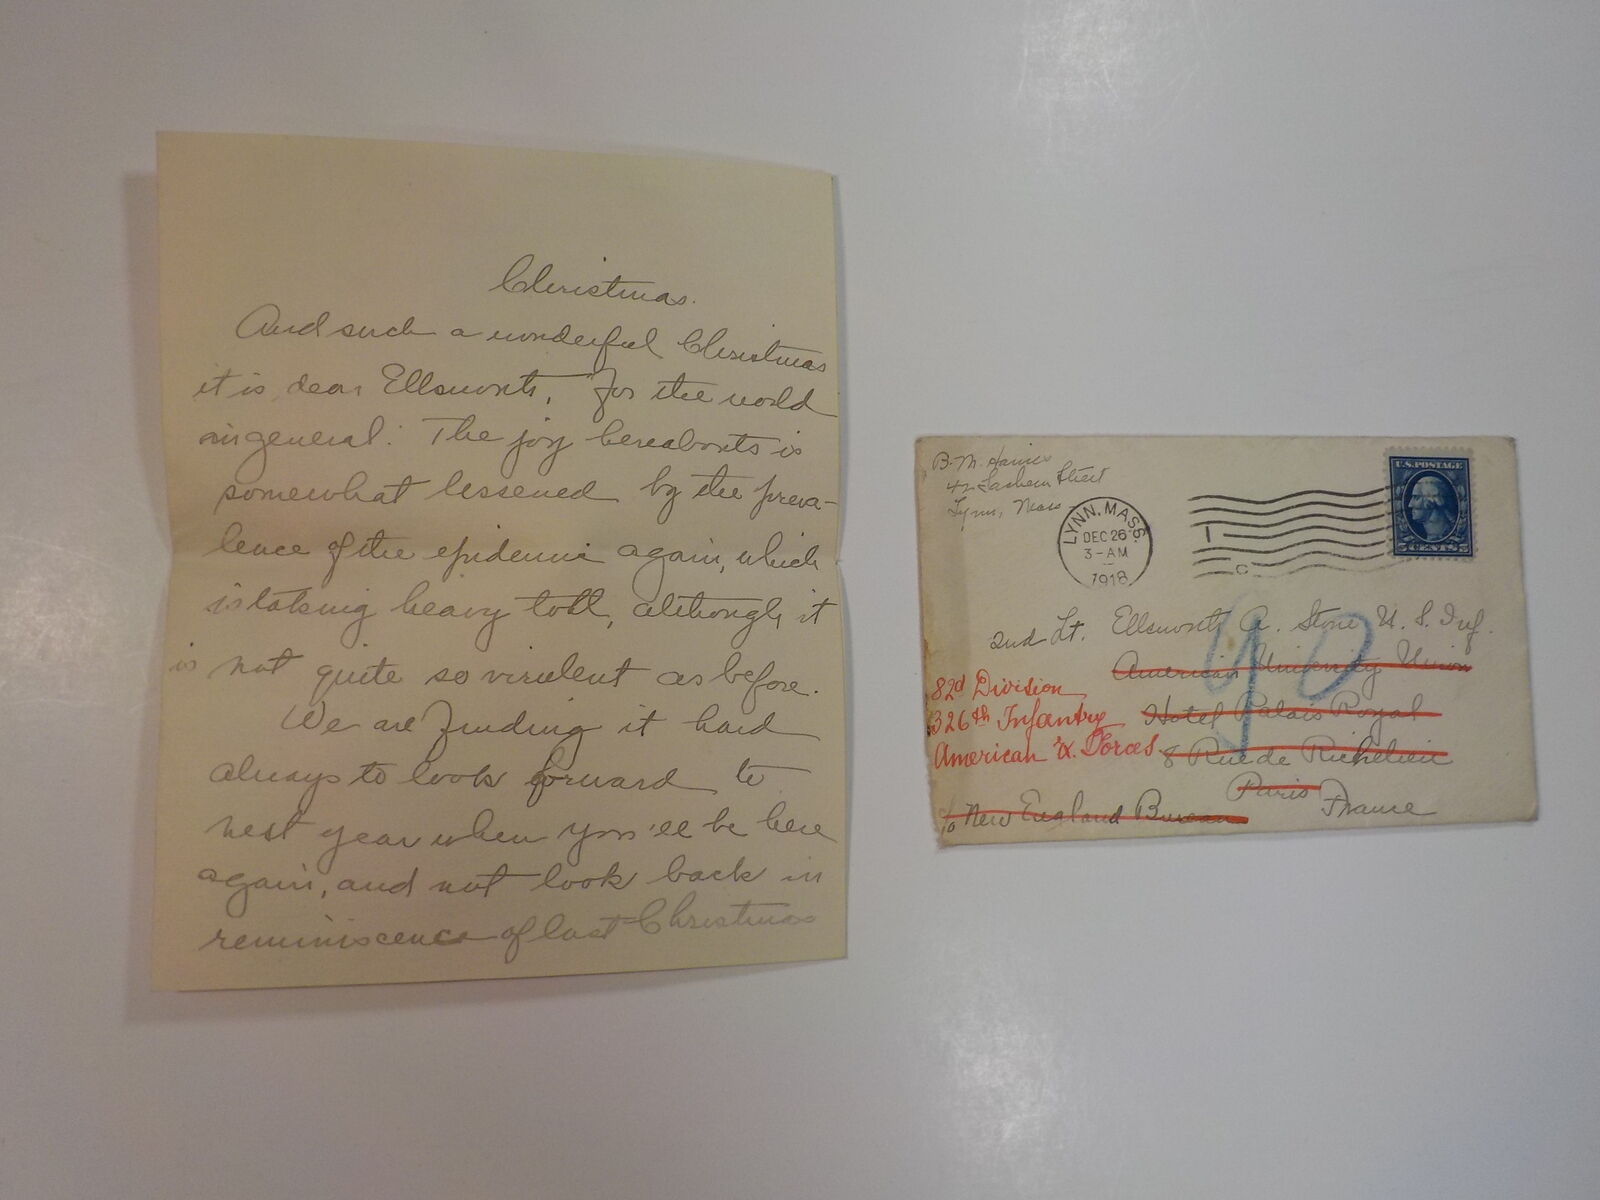 Christmas.
And such a wonderful Christmas
it is, dear Ellsworth, for the world
in general. The joy hereabouts is
somewhat lessened by the preva-
lence of the epidemic again, which
is taking heavy toll, although it
is not quite so virulent as before.
We are finding it hard
always to look forward to
next year when you'll be here
again, and not look back in
reminiscence of last Christmas
B. M.
42 Street
Lynn, Mass
LYNN, MASS.
DEC 26
3-AM
1918
U.S. POSTAGE
5 CENTS 5
2nd Lt. Ellsworth A. Stone U. S. Inf.
American University Union
Hotel Palais Royal
8 Rue de Richelieu
Paris France
c/o New England Bureau
82d Division
326th Infantry
American Ex. Forces
90